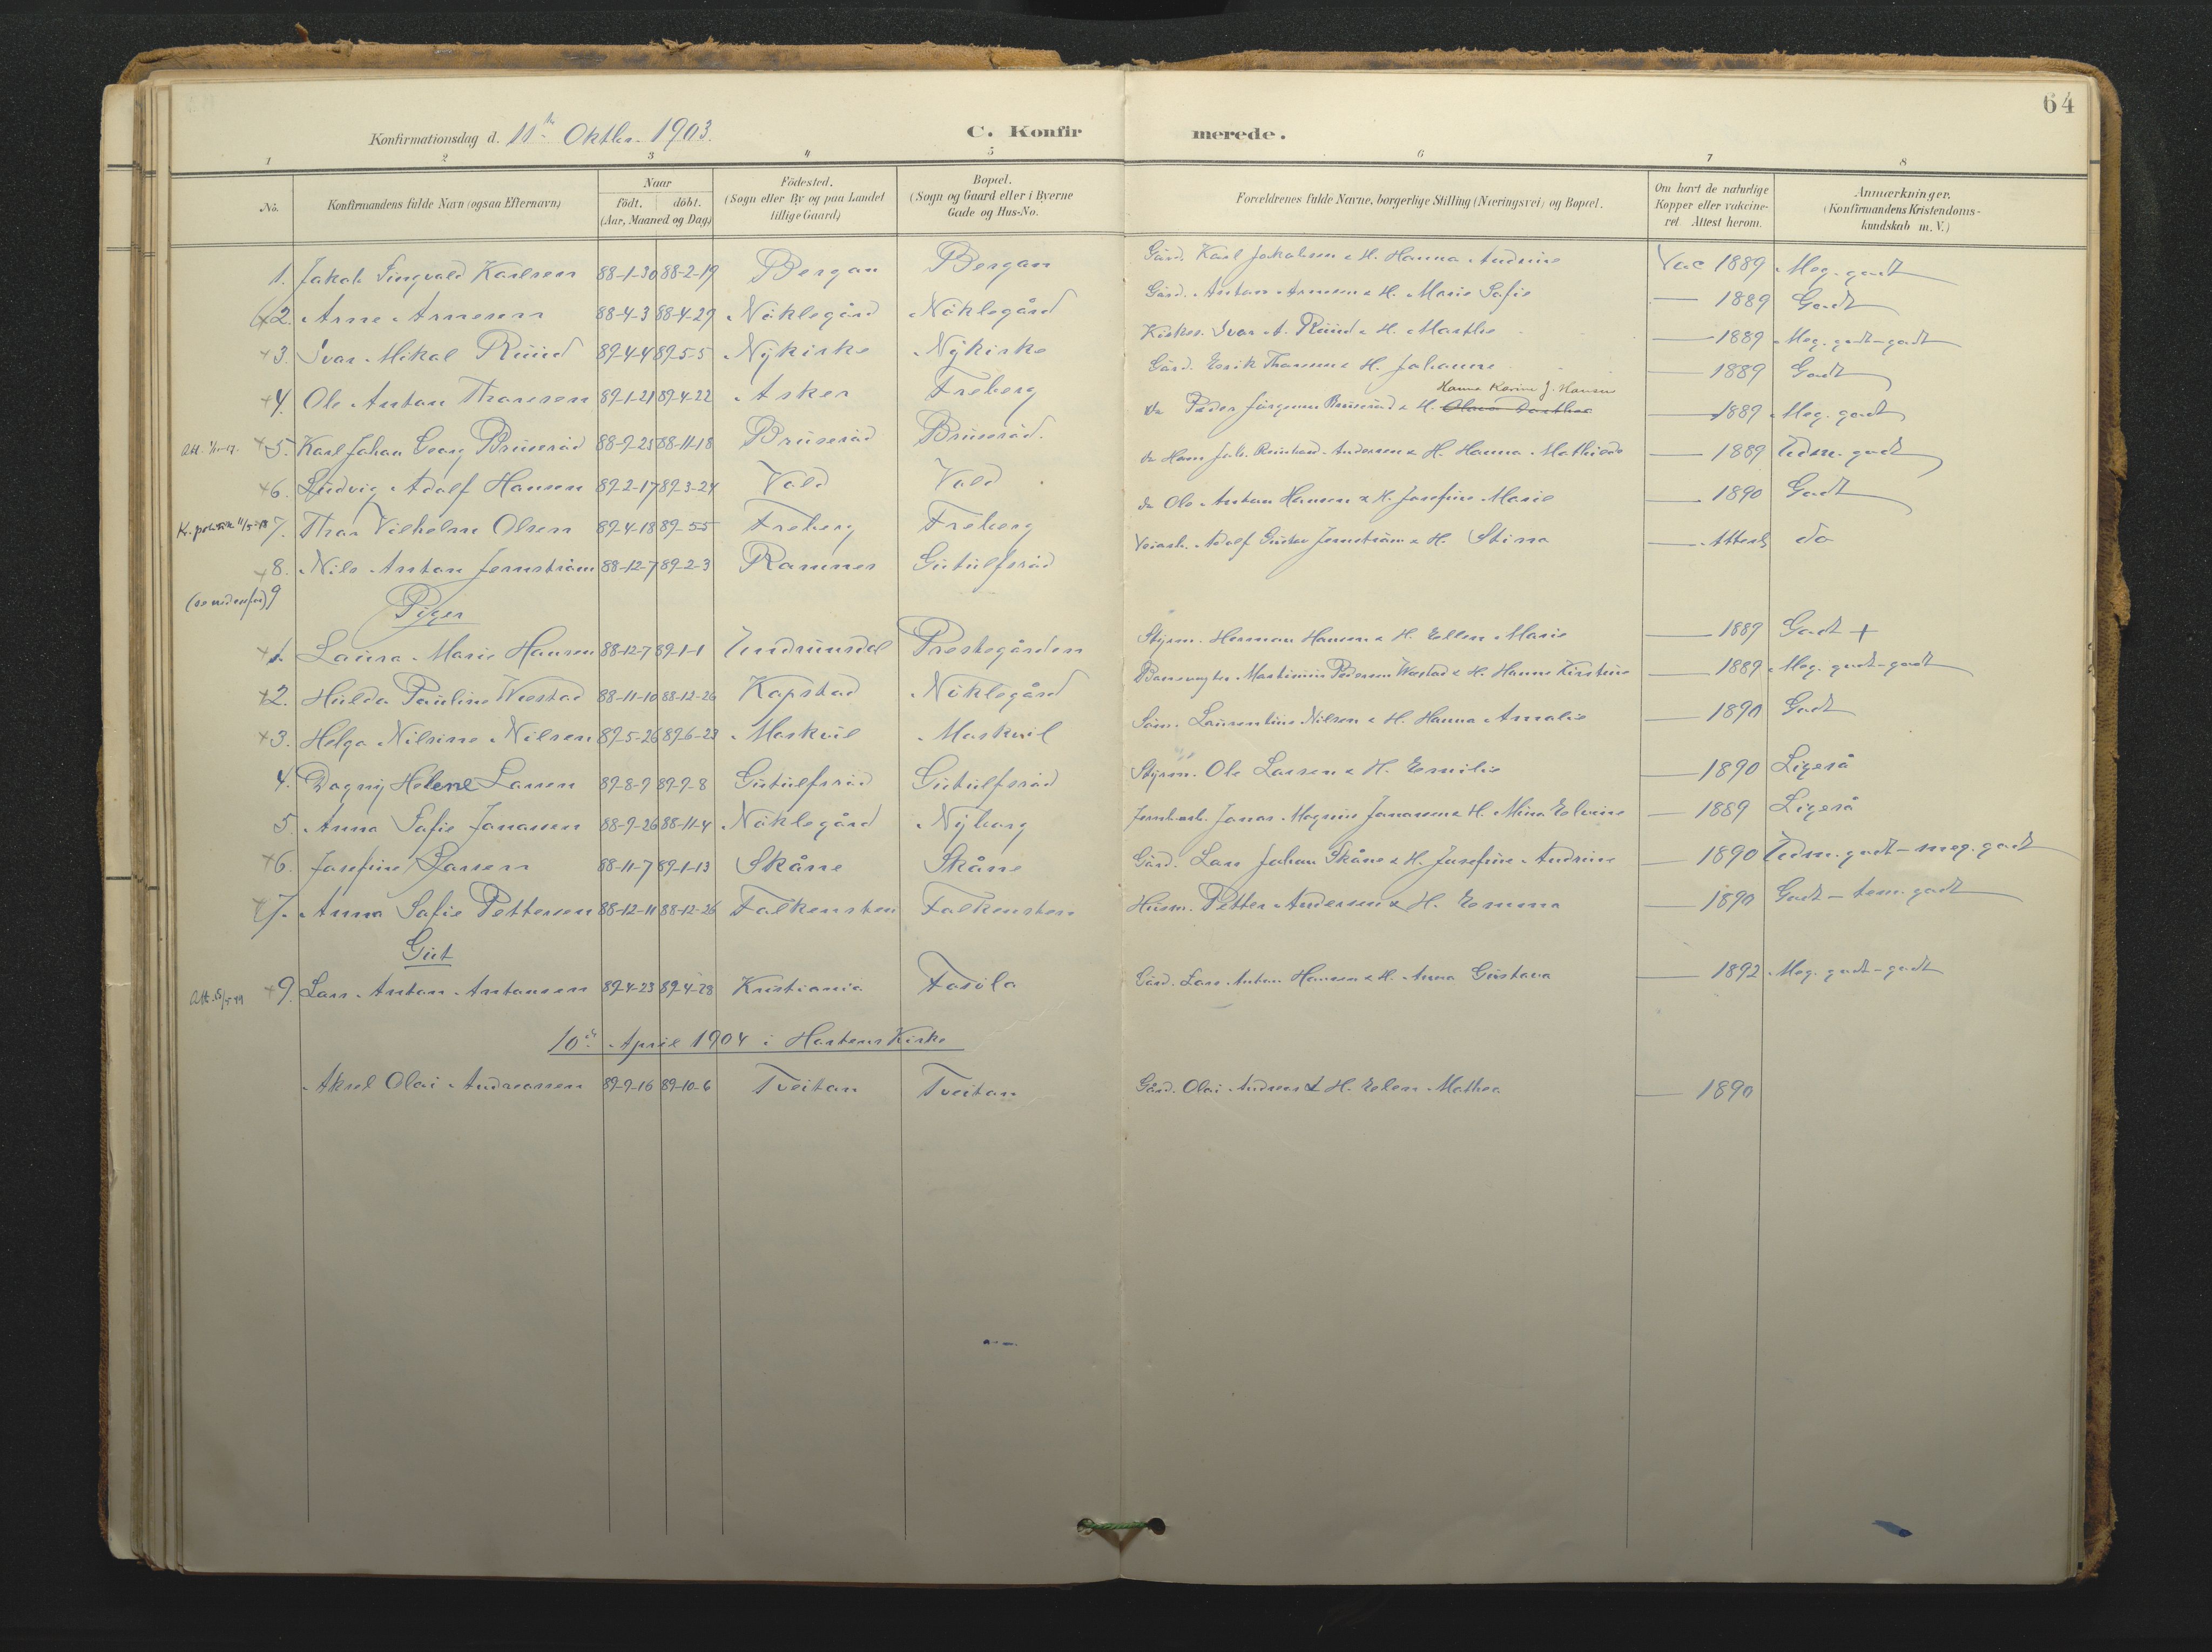 64
Konfirmationsdag d. 11te Oktbr. 1903. C. Konfirmerede.
1 2 3 4 5 6 7 8
No. Konfirmandens fulde Navn (ogsaa Efternavn) Naar født, døbt. (Aar, Maaned og Dag) Födested. (Sogn eller By og paa Landet tillige Gaard) Bopæl. (Sogn og Gaard eller i Byerne Gade og Hus-No. Forældrenes fulde Navne, borgerlige Stilling (Næringsvei) og Bopæl. Om havt de naturlige Kopper eller vakcineret. Attest herom. Anmærkninger. (Konfirmandens Kristendomskundskab m. V.)
1. Jakob Singvald Karlsen 88-1-30 88-2-19 Bergan Bergan Gård. Karl Jakobsen & H. Hanna Andrine Vac 1889 Meg. godt
x 2. Arne Arnesen 88-4-3 88-4-29 Nöklegård Nöklegård Gård. Anton Arnesen & H. Marie Sofie — 1889 Godt
x 3. Ivar Mikal Ruud 89-4-4 89-5-5 Nykirke Nykirke Kirkes. Ivar A. Ruud & H. Marthe — 1889 Meg. godt-godt
x 4. Ole Anton Thoresen 89-1-21 89-4-22 Asker Freberg Gård. Erik Thoresen & H. Johanne — 1889 Godt
Hanna Karine J. Hansen
x 5. Karl Johan Georg Bruserød 88-9-25 88-11-18 Bruserød Bruserød. Do Peder Jörgensen Bruserød & H. Olava Dorthea — 1889 Meg. godt
x 6. Ludvig Adolf Hansen 89-2-17 89-3-24 Vold Vold Do Hans Jak. Reinhard Andersen & H. Hanna Mathilde — 1889 Udm. godt
7. Thor Vilhelm Olsen 89-4-18 89-5-5 Freberg Freberg do Ole Anton Hansen & H. Josefine Marie — 1890 Godt
x 8. Nils Anton Jernström 88-12-7 89-2-3 Ramnes Gutulfsrød Veiarb. Adolf Gustav Jernström & H. Stina — Attest do
(se nedenfor) 9
Piger
x 1. Laura Marie Hansen 88-12-7 89-1-1 Undrumsdal Prestegården Styrm. Herman Hansen & H. Ellen Marie — 1889 Godt +
x 2. Hulda Pauline Westad 88-11-10 88-12-26 Kapstad Nöklegård Banevogter Martinius Pedersen Westad & H. Hanne Kirstine — 1889 Meg. godt-godt
x 3. Helga Nilsine Nilsen 89-5-26 89-6-23 Moskvil Moskvil Söm. Laurentius Nilsen & H. Hanna Amalie — 1890 Godt
4. Dagny Helene Larsen 89-8-9 89-9-8 Gutulfsrød Gutulfsrød Styrm. Ole Larsen & H. Emilie — 1890 Ligeså
5. Anna Sofie Jonassen 88-9-26 88-11-4 Nöklegård Nyborg Jernbarb. Jonas Magnus Jonassen & H. Mina Elvine — 1889 Ligeså
x 6. Josefine Larsen 88-11-7 89-1-13 Skåne Skåne Gård. Lars Johan Skåne & H. Josefine Andrine — 1890 Udm. godt - meg. godt
x 7. Anna Sofie Pettersen 88-12-11 88-12-26 Falkensten Falkensten Husm. Petter Andersen & H. Emma — 1890 Godt - tem. godt
Gut
x 9. Lars Anton Antonsen 89-4-23 89-4-28 Kristiania Fosöla Gård. Lars Anton Hansen & H. Anna Gustava — 1892 Meg. godt-godt
10de April 1904 i Hortens Kirke
Aksel Olai Andreassen 89-9-16 89-10-6 Tveitan Tveitan Gård. Olai Andreas & H. Elen Mathea — 1890